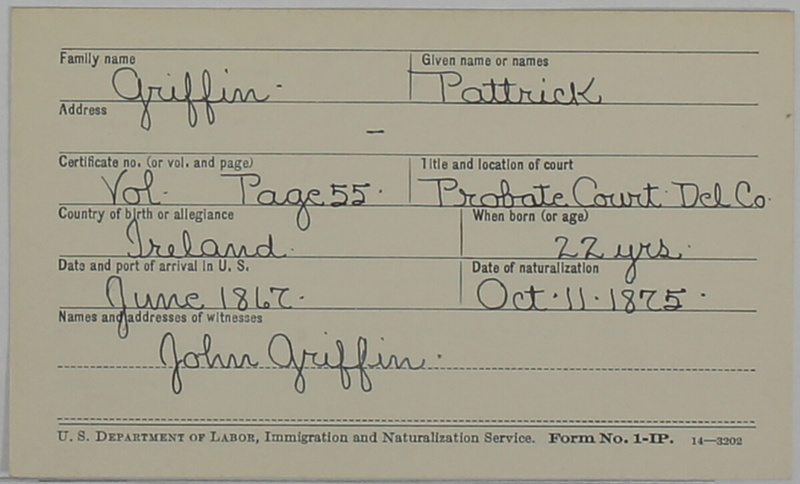 Family name Given name or names
Griffin. Pattrick
Address
–
Certificate no. (or vol. and page) Title and location of court
Vol. Page 55. Probate Court Del Co.
Country of birth or allegiance When born (or age)
Ireland. 22 yrs.
Date and port of arrival in U. S. Date of naturalization
June 1867. Oct. 11. 1875.
Names and addresses of witnesses
John Griffin.
U. S. DEPARTMENT OF LABOR, Immigration and Naturalization Service. Form No. 1-IP. 14—3202